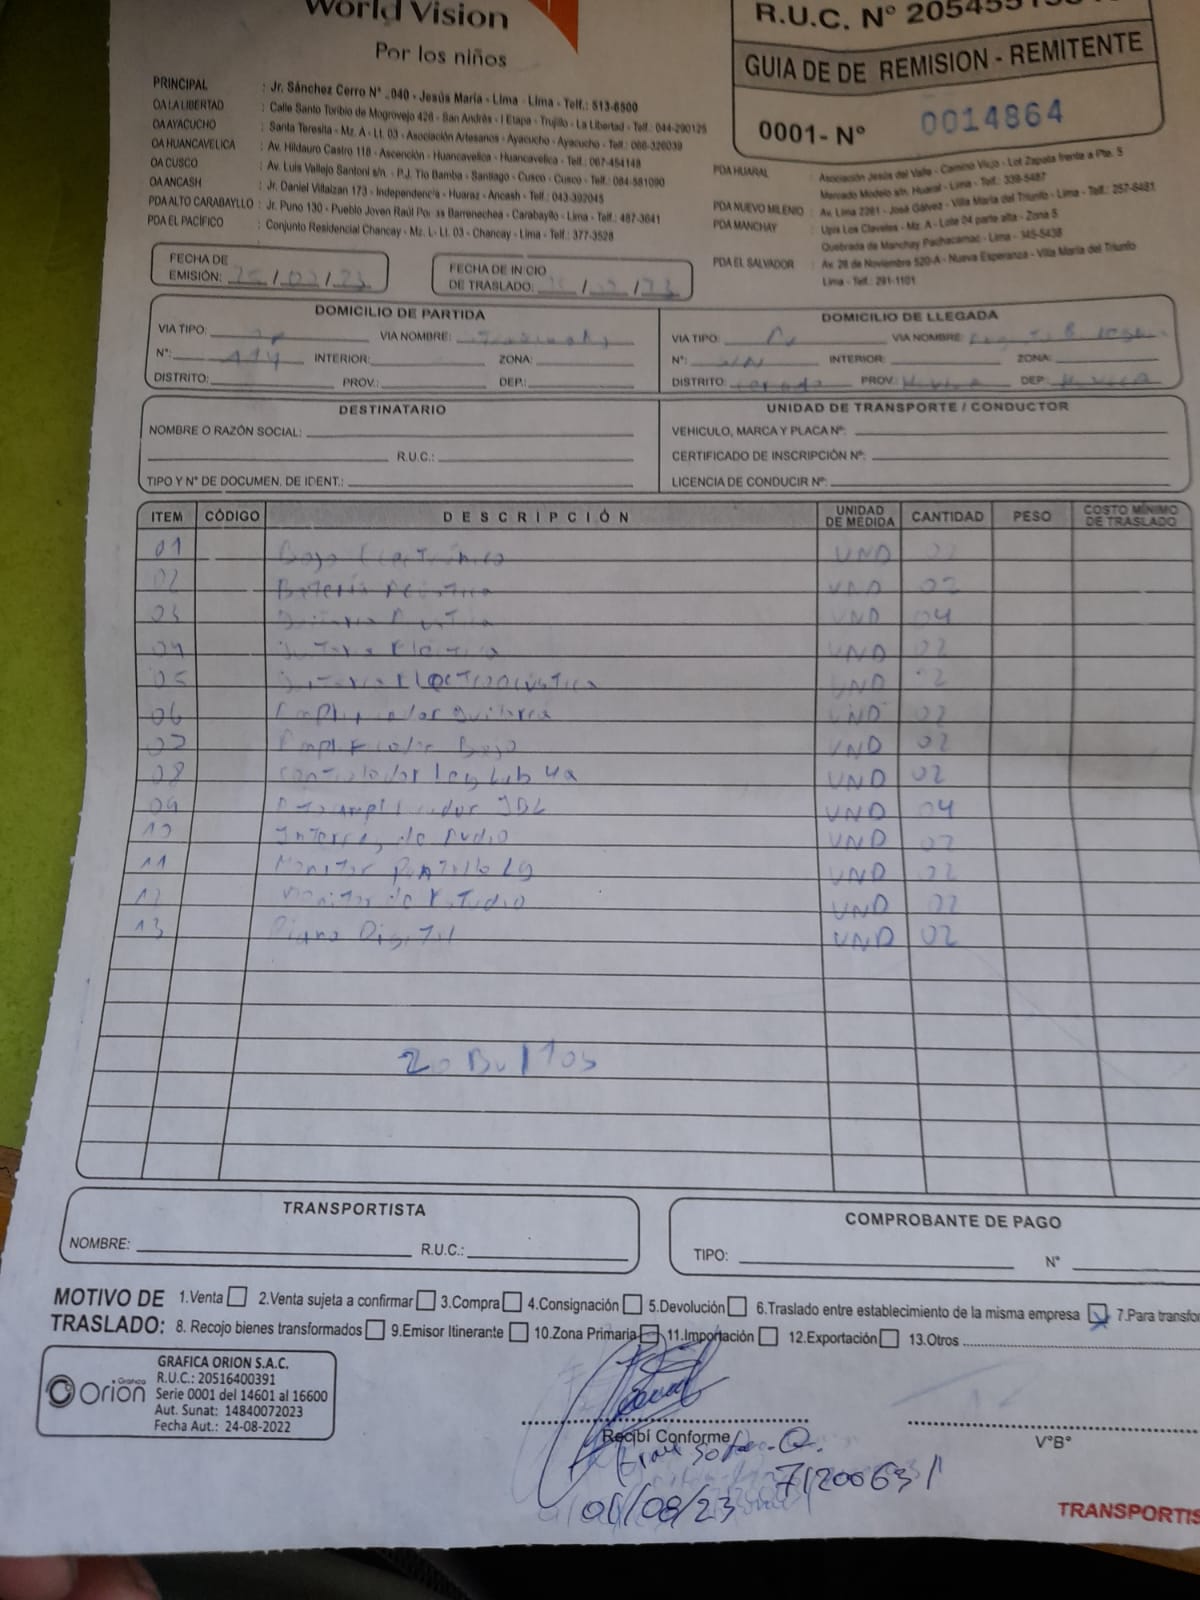 World Vision
Por los niños
R.U.C. Nº
GUIA DE DE REMISION - REMITENTE
0001- Nº 0014864
PRINCIPAL : Jr. Sánchez Cerro Nº .040 - Jesús María - Lima - Lima - Telf.: 513-6500
OA LA LIBERTAD : Calle Santo Toribio de Mogrovejo 426 - San Andrés - I Etapa - Trujillo - La Libertad - Telf.: 044-290125
OA AYACUCHO : Santa Teresita - Mz. A - Lt. 03 - Asociación Artesanos - Ayacucho - Ayacucho - Telf.: 066-326039
OA HUANCAVELICA : Av. Hildauro Castro 118 - Ascención - Huancavelica - Huancavelica - Telf.: 067-454148
OA CUSCO : Av. Luis Vallejo Santoni s/n. - P.J. Tío Bamba - Santiago - Cusco - Cusco - Telf.: 084-581090
OA ANCASH : Jr. Daniel Villaizan 173 - Independencia - Huaraz - Ancash - Telf.: 043-392045
PDA ALTO CARABAYLLO : Jr. Puno 130 - Pueblo Joven Raúl Barrenechea - Carabayllo - Lima - Telf.: 487-3641
PDA EL PACÍFICO : Conjunto Residencial Chancay - Mz. L- Lt. 03 - Chancay - Lima - Telf.: 377-3528
PDA HUARAL : Asociación Jesús del Valle - Camino Viejo - Lot Zapata frente a Pte. 5
Mercado Modelo s/n. Huaral - Lima - Telf.: 339-5487
PDA NUEVO MILENIO : Av. Lima 2261 - José Gálvez - Villa María del Triunfo - Lima - Telf.: 257-8481
PDA MANCHAY : Upis Los Claveles - Mz. A - Lote 04 parte alta - Zona 5
Quebrada de Manchay Pachacamac - Lima - 345-5438
PDA EL SALVADOR : Av. 26 de Noviembre 520-A - Nueva Esperanza - Villa María del Triunfo
Lima - Telf.: 291-1101
FECHA DE
EMISIÓN: / /23
FECHA DE INICIO
DE TRASLADO: / /23
DOMICILIO DE PARTIDA
VIA TIPO: VIA NOMBRE:
Nº: INTERIOR: ZONA:
DISTRITO: PROV.: DEP.:
DOMICILIO DE LLEGADA
VIA TIPO: VIA NOMBRE:
Nº: S/N INTERIOR: ZONA:
DISTRITO: PROV.: DEP:
DESTINATARIO
NOMBRE O RAZÓN SOCIAL:
R.U.C.:
TIPO Y Nº DE DOCUMEN. DE IDENT.:
UNIDAD DE TRANSPORTE / CONDUCTOR
VEHICULO, MARCA Y PLACA Nº:
CERTIFICADO DE INSCRIPCIÓN Nº:
LICENCIA DE CONDUCIR Nº:
ITEM CÓDIGO DESCRIPCIÓN UNIDAD DE MEDIDA CANTIDAD PESO COSTO MÍNIMO DE TRASLADO
01 Bajo Electrónico UND 02
02 Batería Acústica UND 02
03 Guitarra Acústica UND 04
04 Guitarra Eléctrica UND 02
05 Guitarra Electroacústica UND 02
06 Amplificador Guitarra UND 02
07 Amplificador Bajo UND 02
08 Controlador UND 02
09 JBL UND 04
10 Interfaz de Audio UND 02
11 Monitor Pantalla LG UND 02
12 Monitor de Estudio UND 02
13 Piano Digital UND 02
20 Bultos
TRANSPORTISTA
NOMBRE: R.U.C.:
COMPROBANTE DE PAGO
TIPO: Nº
MOTIVO DE TRASLADO: 1.Venta 2.Venta sujeta a confirmar 3.Compra 4.Consignación 5.Devolución 6.Traslado entre establecimiento de la misma empresa 7.Para
8. Recojo bienes transformados 9.Emisor Itinerante 10.Zona Primaria 11.Importación 12.Exportación 13.Otros
Grafica Orion
GRAFICA ORION S.A.C.
R.U.C.: 20516400391
Serie 0001 del 14601 al 16600
Aut. Sunat: 14840072023
Fecha Aut.: 24-08-2022
Recibí Conforme
V°B°
71200631
01/08/23